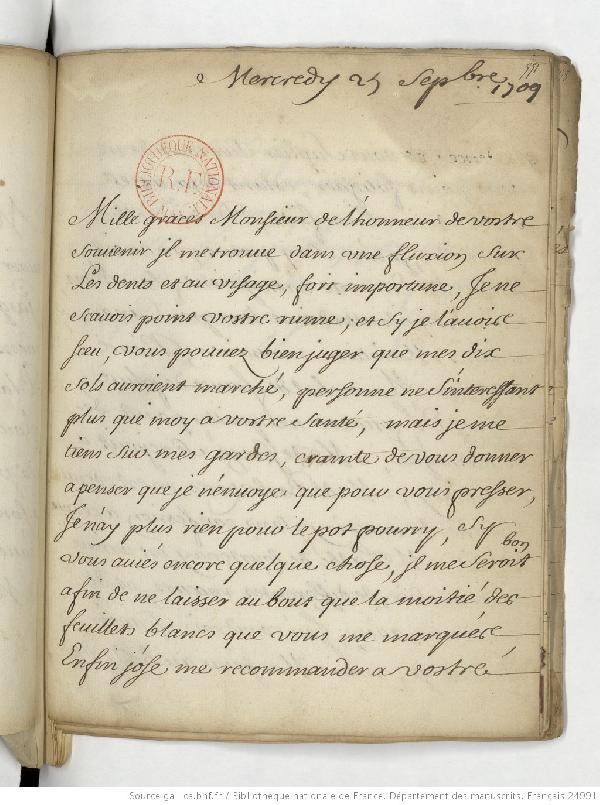 Mercredy 25 Sepbre 1709
BIBLIOTHEQUE NATIONALE
R.F.
Mille graces Monsieur de l'honneur de vostre
souvenir jl me trouve dans vne fluxion sur
Les dents et au visage, fort importune, Je ne
scavois point vostre rume, et sy je lavois
sceu, vous pouviez bien juger que mes dix
sols auroient marché, personne ne s'interessant
plus que moy a vostre santé, mais je me
tiens sur mes gardes, crainte de vous donner
a penser que je n'envoye que pour vous presser,
Je n'ay plus rien pour le pot pourry, Sy
vous aviés encore quelque chose, jl me seroit bon
afin de ne laisser au bout que la moitié des
feuillets blancs que vous me marqués
Enfin j'ose me recommander a vostre
Source gallica.bnf.fr / Bibliothèque nationale de France. Département des manuscrits. Français 24991